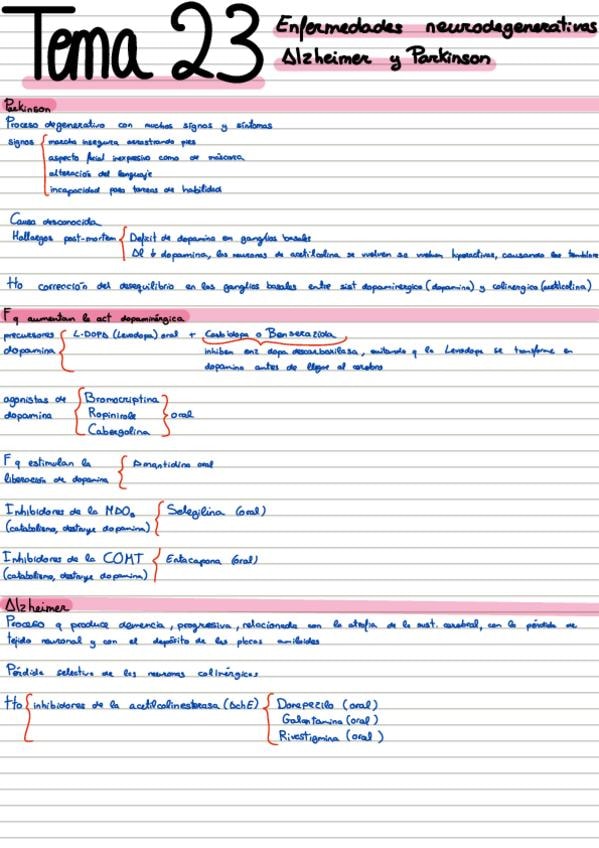 Tema 23
Enfermedades neurodegenerativas
Alzheimer y Parkinson
Parkinson
Proceso degenerativo con muchos signos y síntomas
signos { marcha insegura arrastrando pies
aspecto facial inexpresivo como de máscara
alteración del lenguaje
incapacidad para tareas de habilidad
Causa desconocida
Hallazgos post-mortem { Deficit de dopamina en ganglios basales
Al ↓ dopamina, las neuronas de acetilcolina se vuelven se vuelven hiperactivas, causando los temblores
Tto corrección del desequilibrio en los ganglios basales entre sist dopaminérgico (dopamina) y colinérgico (acetilcolina)
F q aumentan la act dopaminérgica
precursores { L-DOPA (Levodopa) oral + Carbidopa o Benserazida
dopamina
inhiben enz dopa descarboxilasa, evitando q la Levodopa se transforme en
dopamina antes de llegar al cerebro
agonistas de { Bromocriptina
dopamina Ropinirole } oral
Cabergolina
F q estimulan la { Amantidina oral
liberación de dopamina
Inhibidores de la MAOB { Selegilina (oral)
(catabolismo, destruye dopamina)
Inhibidores de la COMT { Entacapona (oral)
(catabolismo, destruye dopamina)
Alzheimer
Proceso q produce demencia, progresiva, relacionada con la atrofia de la sust. cerebral, con la pérdida de
tejido neuronal y con el depósito de las placas amiloides
Pérdida selectiva de las neuronas colinérgicas
Tto { inhibidores de la acetilcolinesterasa (AchE) { Donepezilo (oral)
Galantamina (oral)
Rivastigmina (oral)